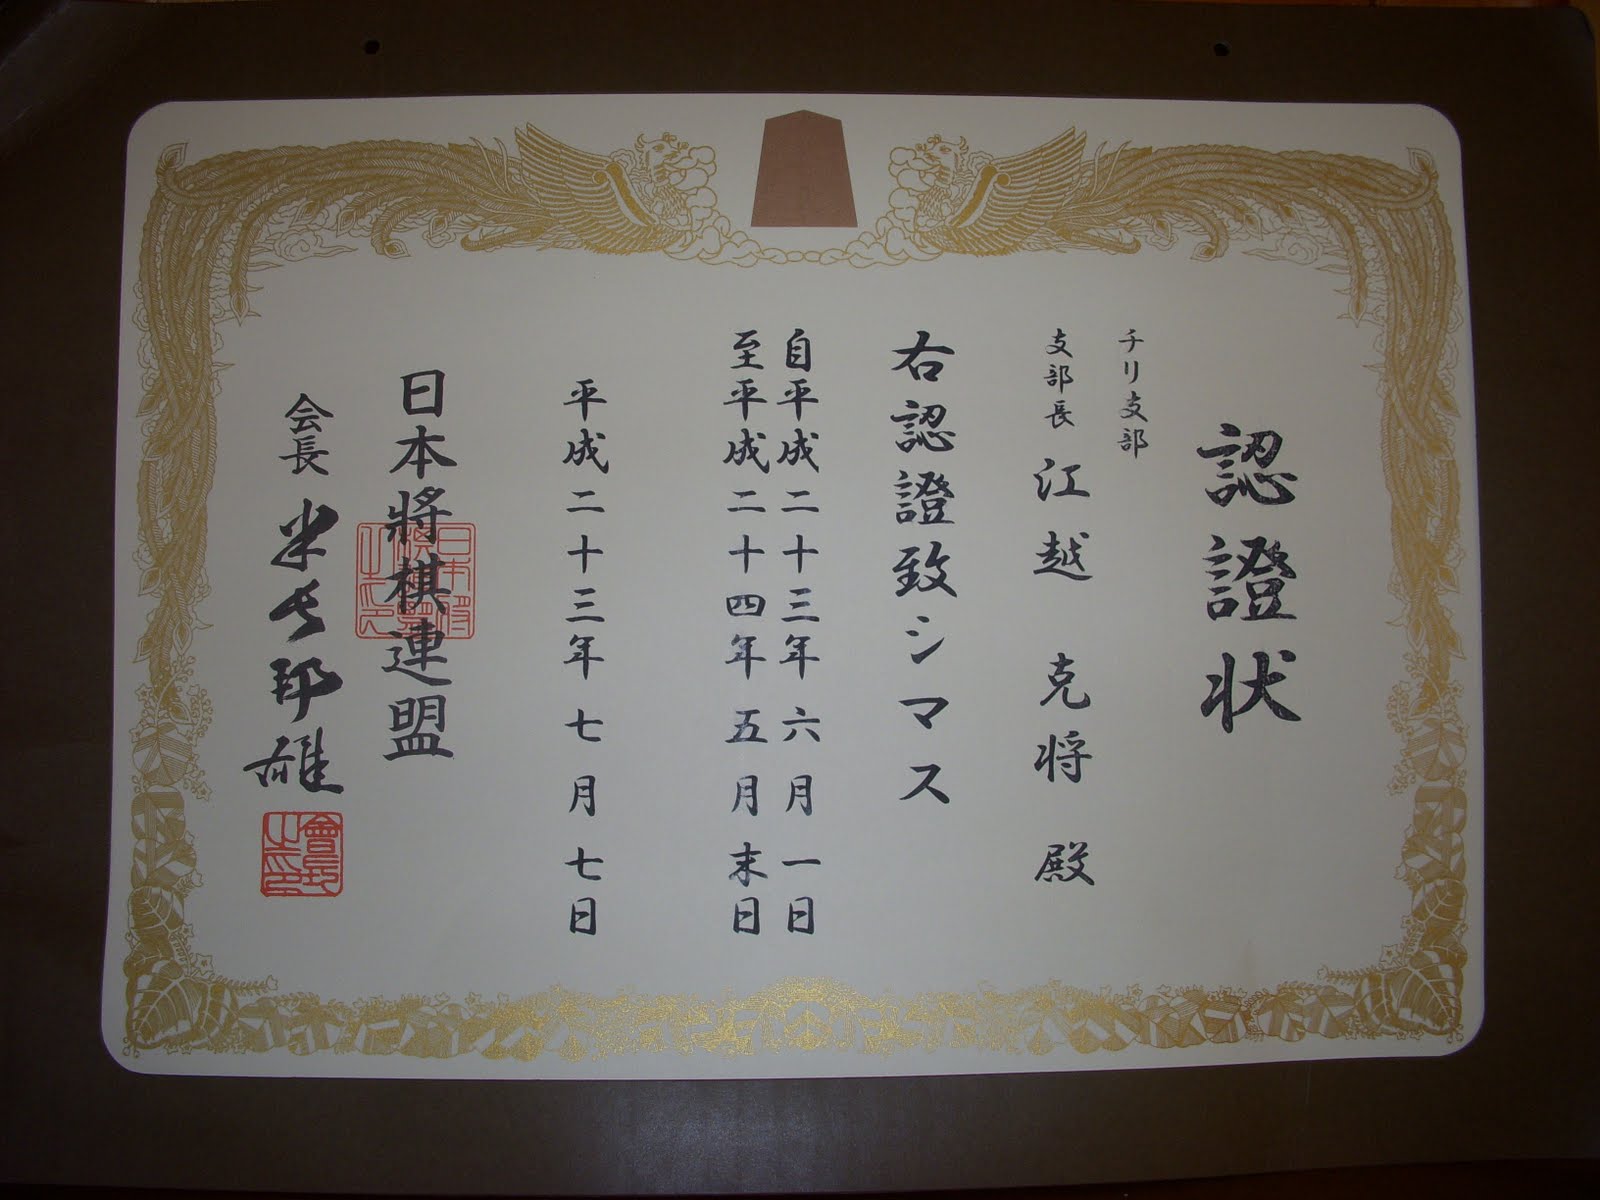 認證状
チリ支部
支部長 江越 克将 殿
右認證致シマス
自平成二十三年六月一日
至平成二十四年五月末日
平成二十三年七月七日
日本將棋連盟
会長 米長邦雄